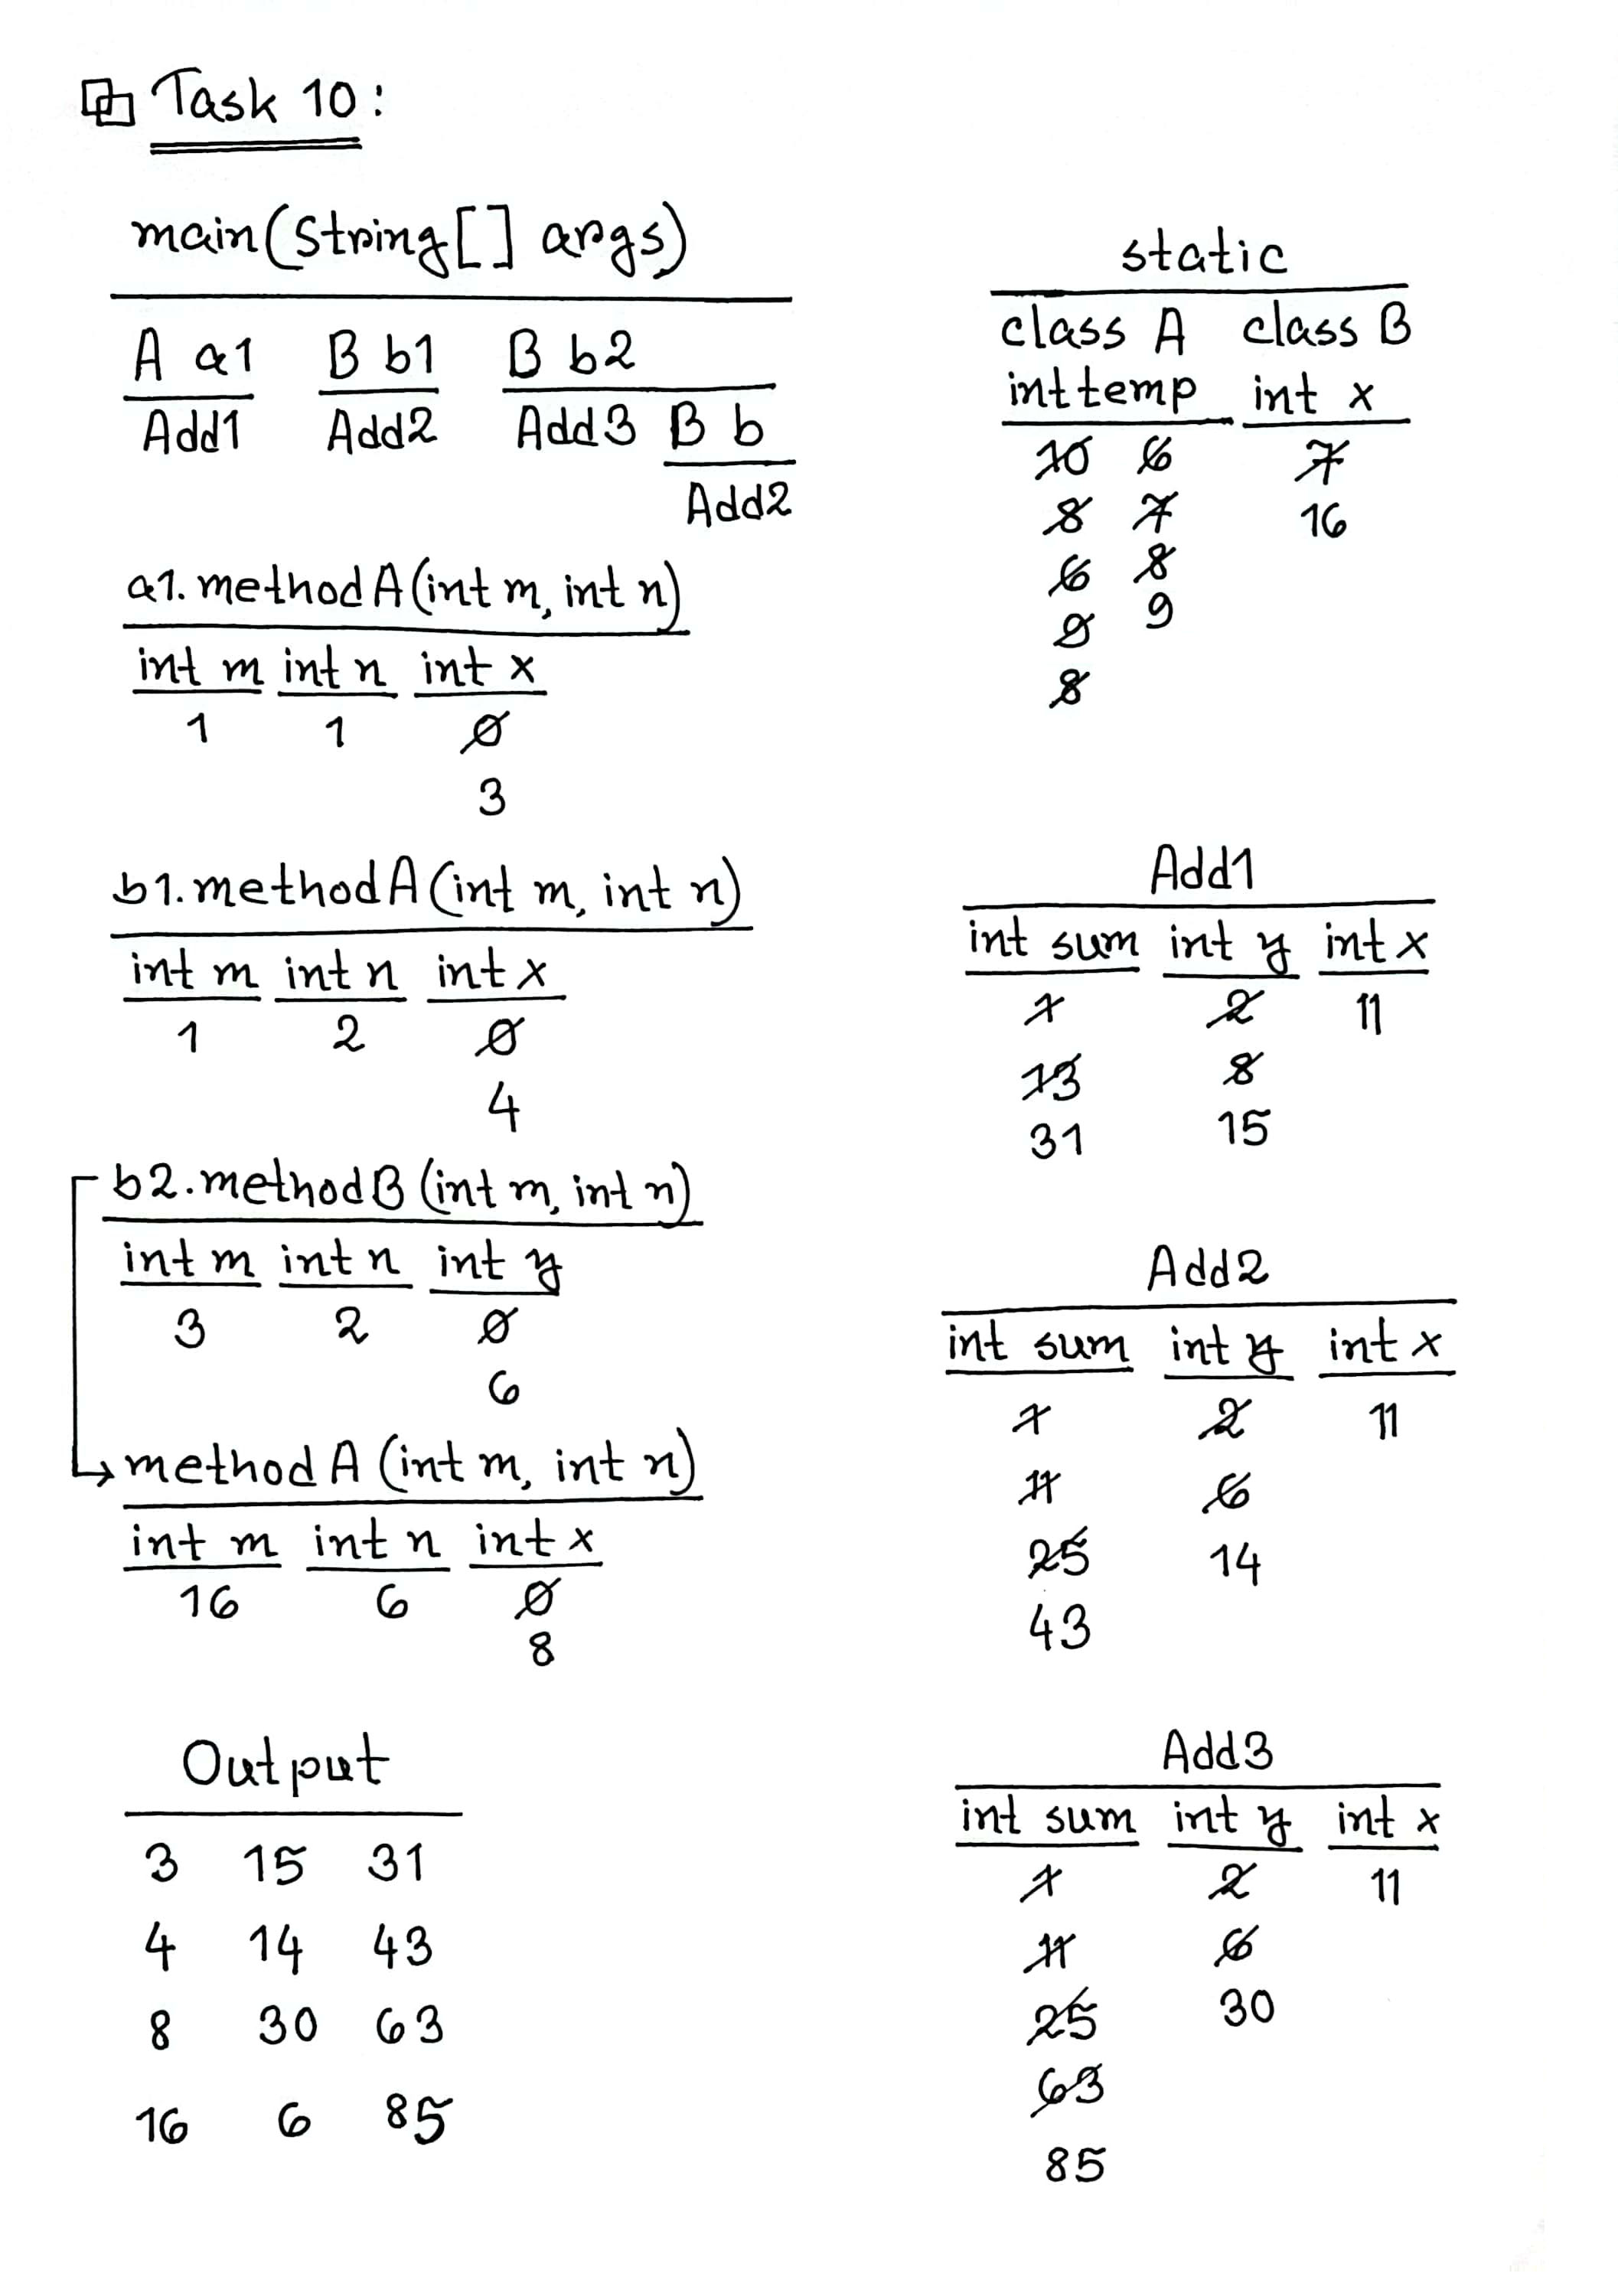 Task 10:
main(String[] args)
A a1 B b1 B b2
Add1 Add2 Add3 B b
Add2
a1.methodA(int m, int n)
int m int n int x
1 1 0
3
b1.methodA(int m, int n)
int m int n int x
1 2 0
4
b2.methodB(int m, int n)
int m int n int y
3 2 0
6
methodA (int m, int n)
int m int n int x
16 6 0
8
Output
3 15 31
4 14 43
8 30 63
16 6 85
static
class A class B
int temp int x
10 6 7
8 7 16
6 8
9 9
8
Add1
int sum int y int x
1 2 11
13 8
31 15
Add2
int sum int y int x
1 2 11
11 6
25 14
43
Add3
int sum int y int x
1 2 11
11 6
25 30
63
85